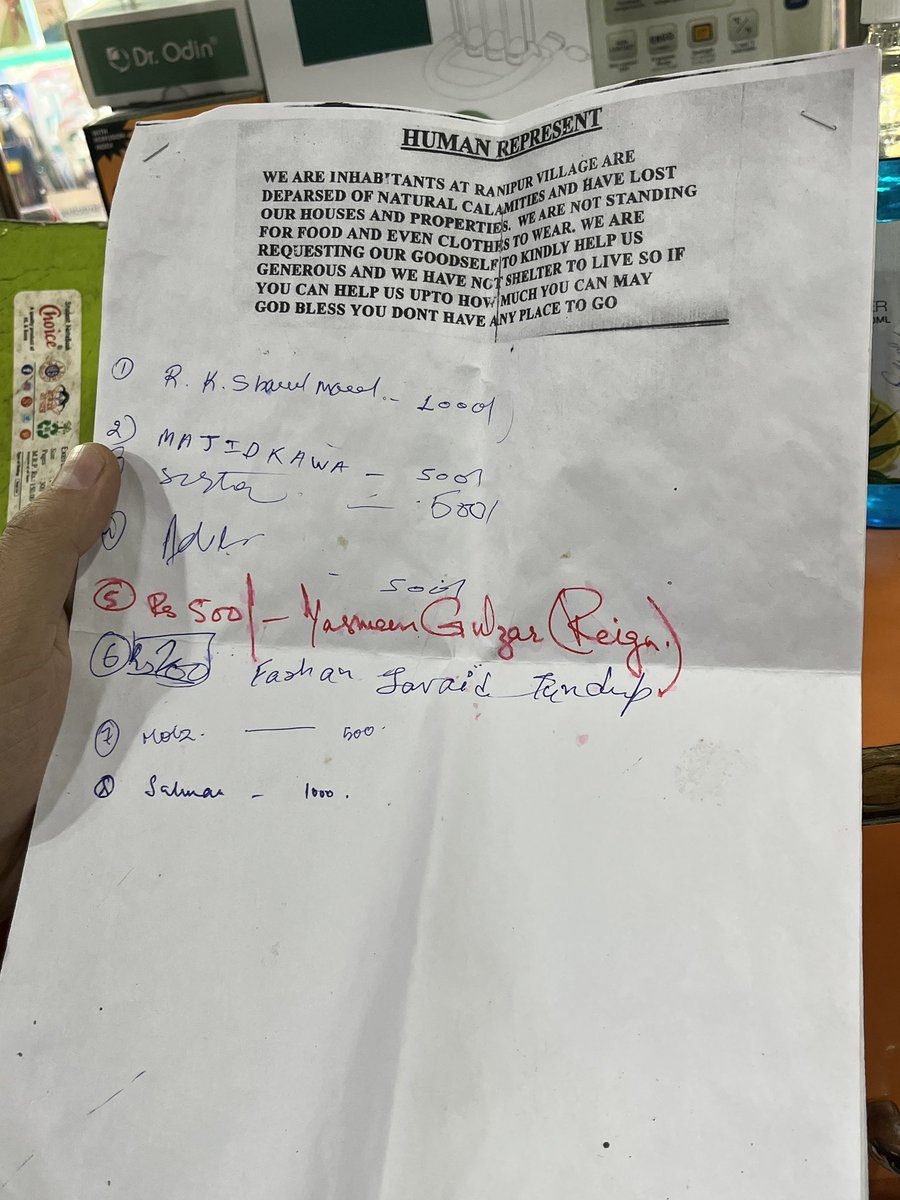 Dr. Odin®
HUMAN REPRESENT
WE ARE INHABITANTS AT RANIPUR VILLAGE ARE
DEPARSED OF NATURAL CALAMITIES AND HAVE LOST
OUR HOUSES AND PROPERTIES. WE ARE NOT STANDING
FOR FOOD AND EVEN CLOTHES TO WEAR. WE ARE
REQUESTING OUR GOODSELF TO KINDLY HELP US
GENEROUS AND WE HAVE NOT SHELTER TO LIVE SO IF
YOU CAN HELP US UPTO HOW MUCH YOU CAN MAY
GOD BLESS YOU DONT HAVE ANY PLACE TO GO
Choice
① R. K. - 1000/
2) MAJID KAWA - 500/
= 500/
- 500/
⑤ Rs 500/- Yasmeen Gulzar (Reign.)
⑥ Rs 200
⑦ 500
⑧ Salman - 1000.